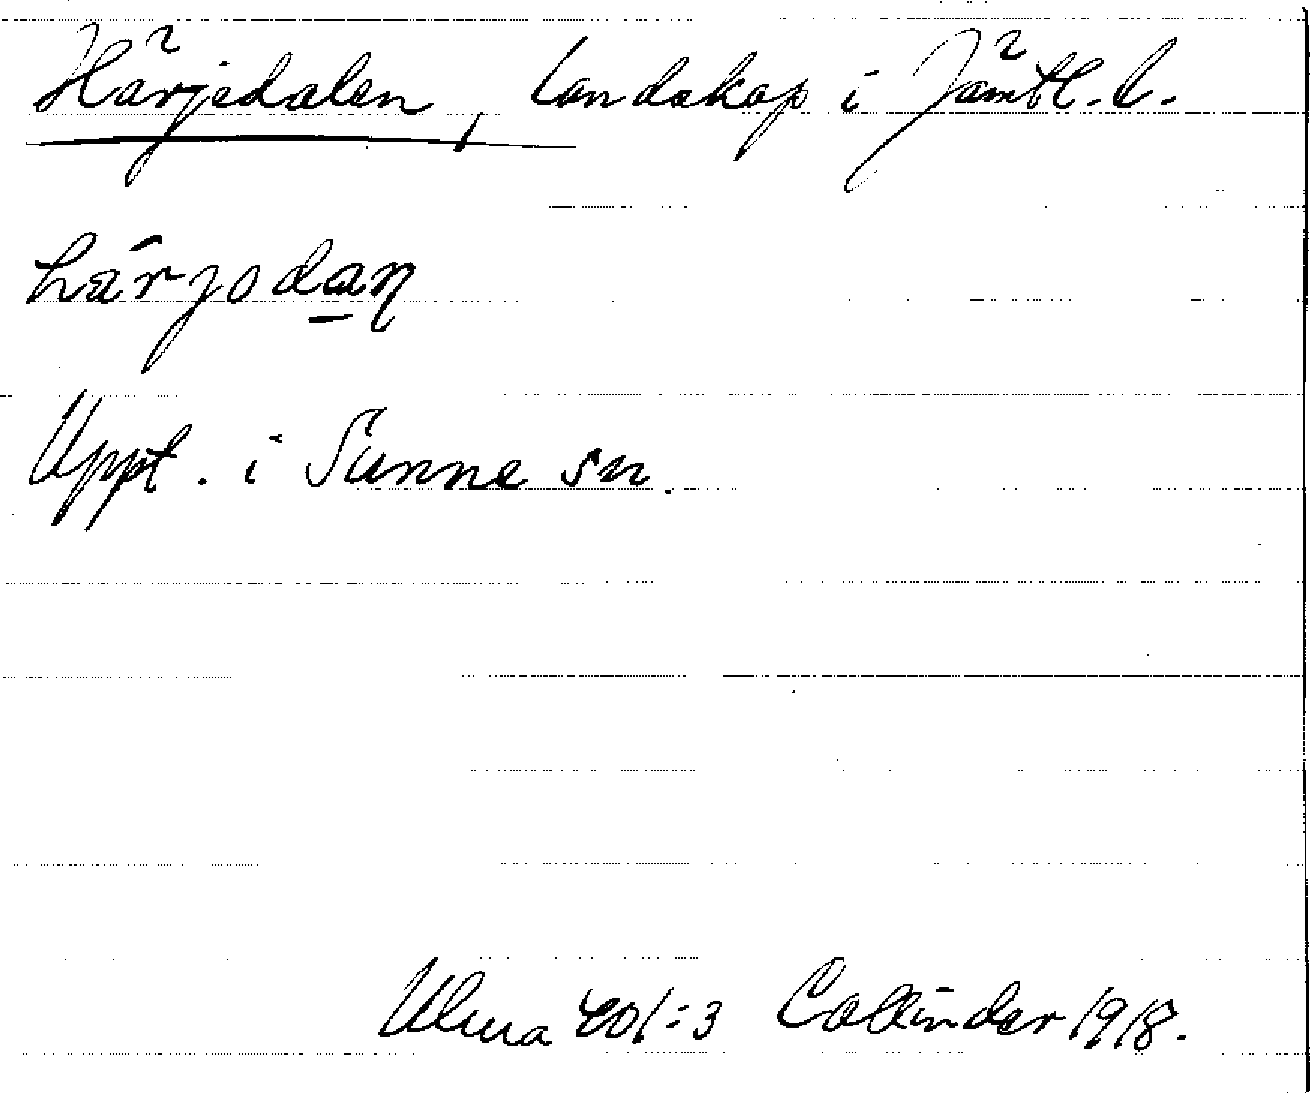 Härjedalen, landskap i Jämtl. l.
härjodaṉ
Uppt. i Sunne sn.
Ulma 401:3 Collinder 1918.